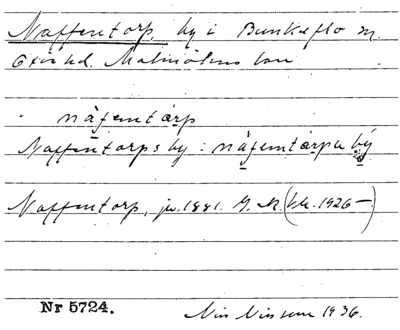 Naffentorp by i Bunkeflo sn.
Oxie hd. Malmöhus län
näfemtårp
Naffentorps by: näfemtårpa bý
Naffentorp, jw. 1881. G. K. (1926–)
Nr 5724. Nils Nilsson 1936.